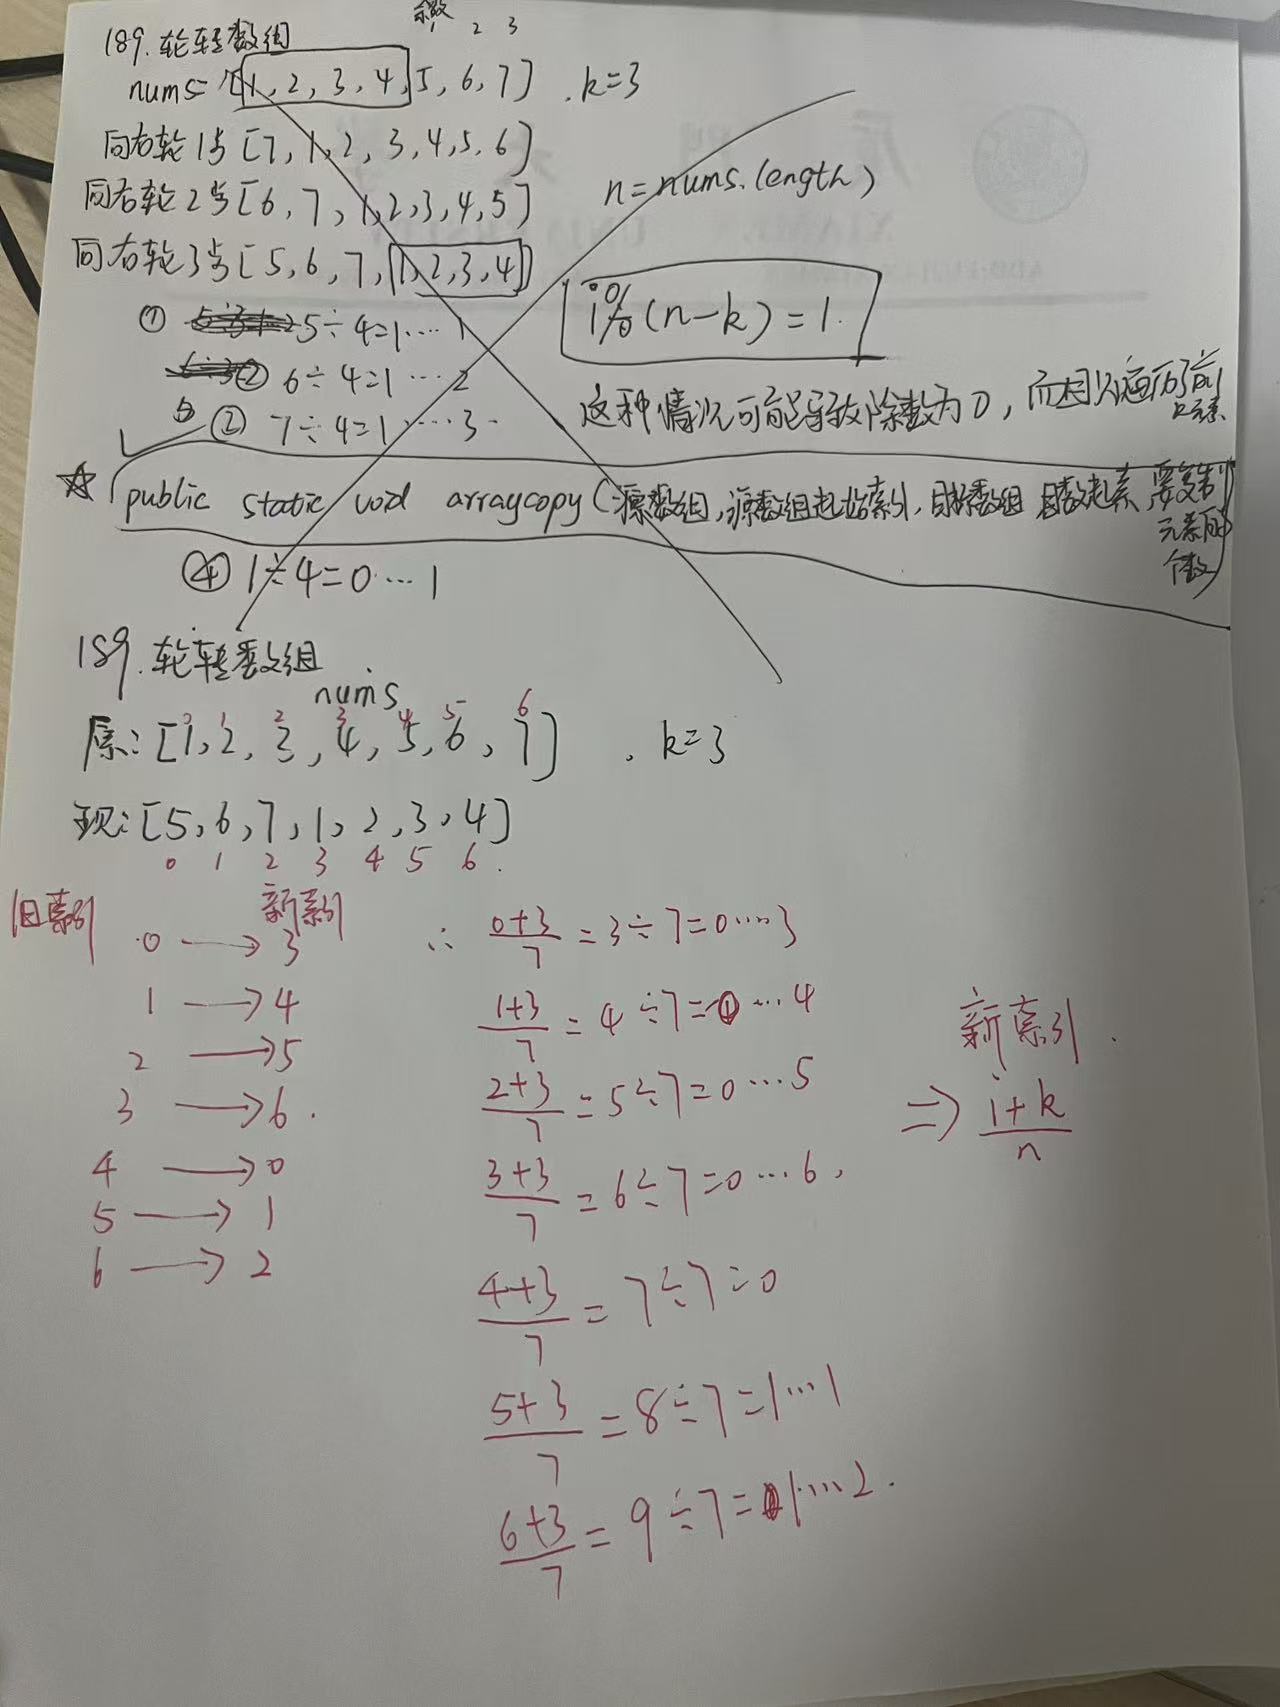 余数
1 2 3
189. 轮转数组
nums=[1, 2, 3, 4, 5, 6, 7] . k=3
向右轮1步[7, 1, 2, 3, 4, 5, 6]
向右轮2步[6, 7, 1, 2, 3, 4, 5]
n=nums.length)
向右轮3步[5, 6, 7, 1, 2, 3, 4]
i%(n-k)=1.
① 5÷4=1····1
② 6÷4=1···2
③ 7÷4=1····3
这种情况可能导致除数为0, 而因只遍历了前
元素
☆ public static void arraycopy(源数组, 源数组起始索引, 目标数组 要复制
元素的
个数)
④ 1÷4=0···1
189. 轮转数组
nums
0 1 2 3 4 5 6
原: [1, 2, 3, 4, 5, 6, 7] . k=3
现: [5, 6, 7, 1, 2, 3, 4]
0 1 2 3 4 5 6
旧索引 新索引
0 → 3 ∴ 0+3/7 = 3÷7=0····3
1 → 4 1+3/7 = 4÷7=0···4
新索引
2 → 5 2+3/7 = 5÷7=0···5
3 → 6 ⇒ i+k/n
4 → 0 3+3/7 = 6÷7=0···6
5 → 1
6 → 2 4+3/7 = 7÷7=0
5+3/7 = 8÷7=1···1
6+3/7 = 9÷7=1···2